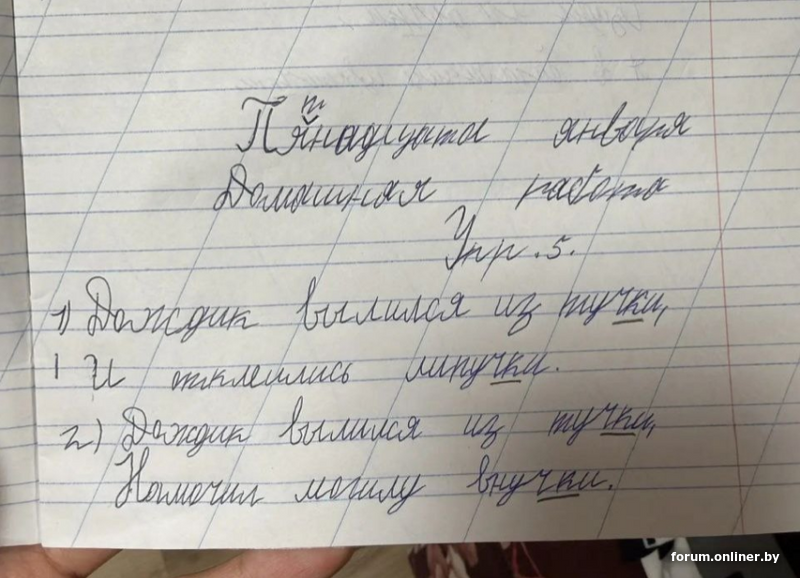 Пятнадцата января
Домашная работа
Упр. 5.
1) Дождик вылился из тучки,
И отклеились липучки.
2) Дождик вылился из тучки,
Намочил могилу внучки.
forum.onliner.by